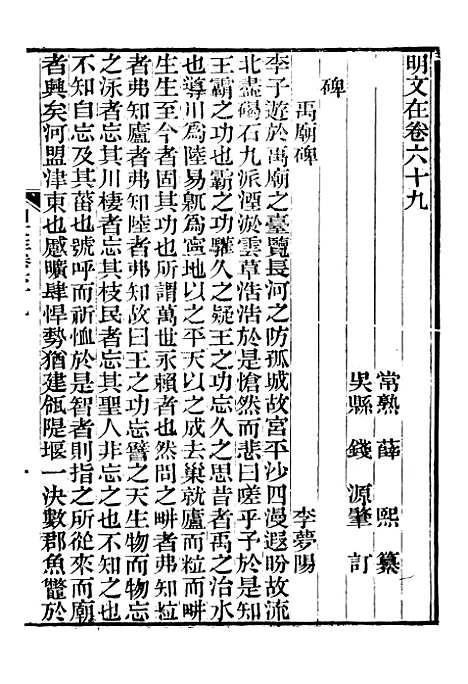 明文在卷六十九
常熟 薛 熙 纂
吳縣 錢 源肇 訂
碑
禹廟碑 李夢陽
李子遊於禹廟之臺覽長河之防孤城故宮平沙四漫遐盼故流
北盡碣石九派湮淤雲草浩浩於是愴然而悲曰嗟乎予於是知
王霸之功也霸之功驩久之疑王之功忘久之思昔者禹之治水
也導川爲陸易𣃁爲寧地以之平天以之成去巢就廬而粒而畊
生生至今者固其功也所謂萬世永賴者也然問之畊者弗知粒
者弗知廬者弗知陸者弗知故曰王之功忘譬之天生物而物忘
之泳者忘其川棲者忘其枝民者忘其聖人非忘之也不知之也
不知自忘及其菑也號呼而祈恤於是智者則指之所從來而廟
者興矣河盟津東也蹙曠肆悍勢猶建瓴隄堰一決數郡魚鼈於